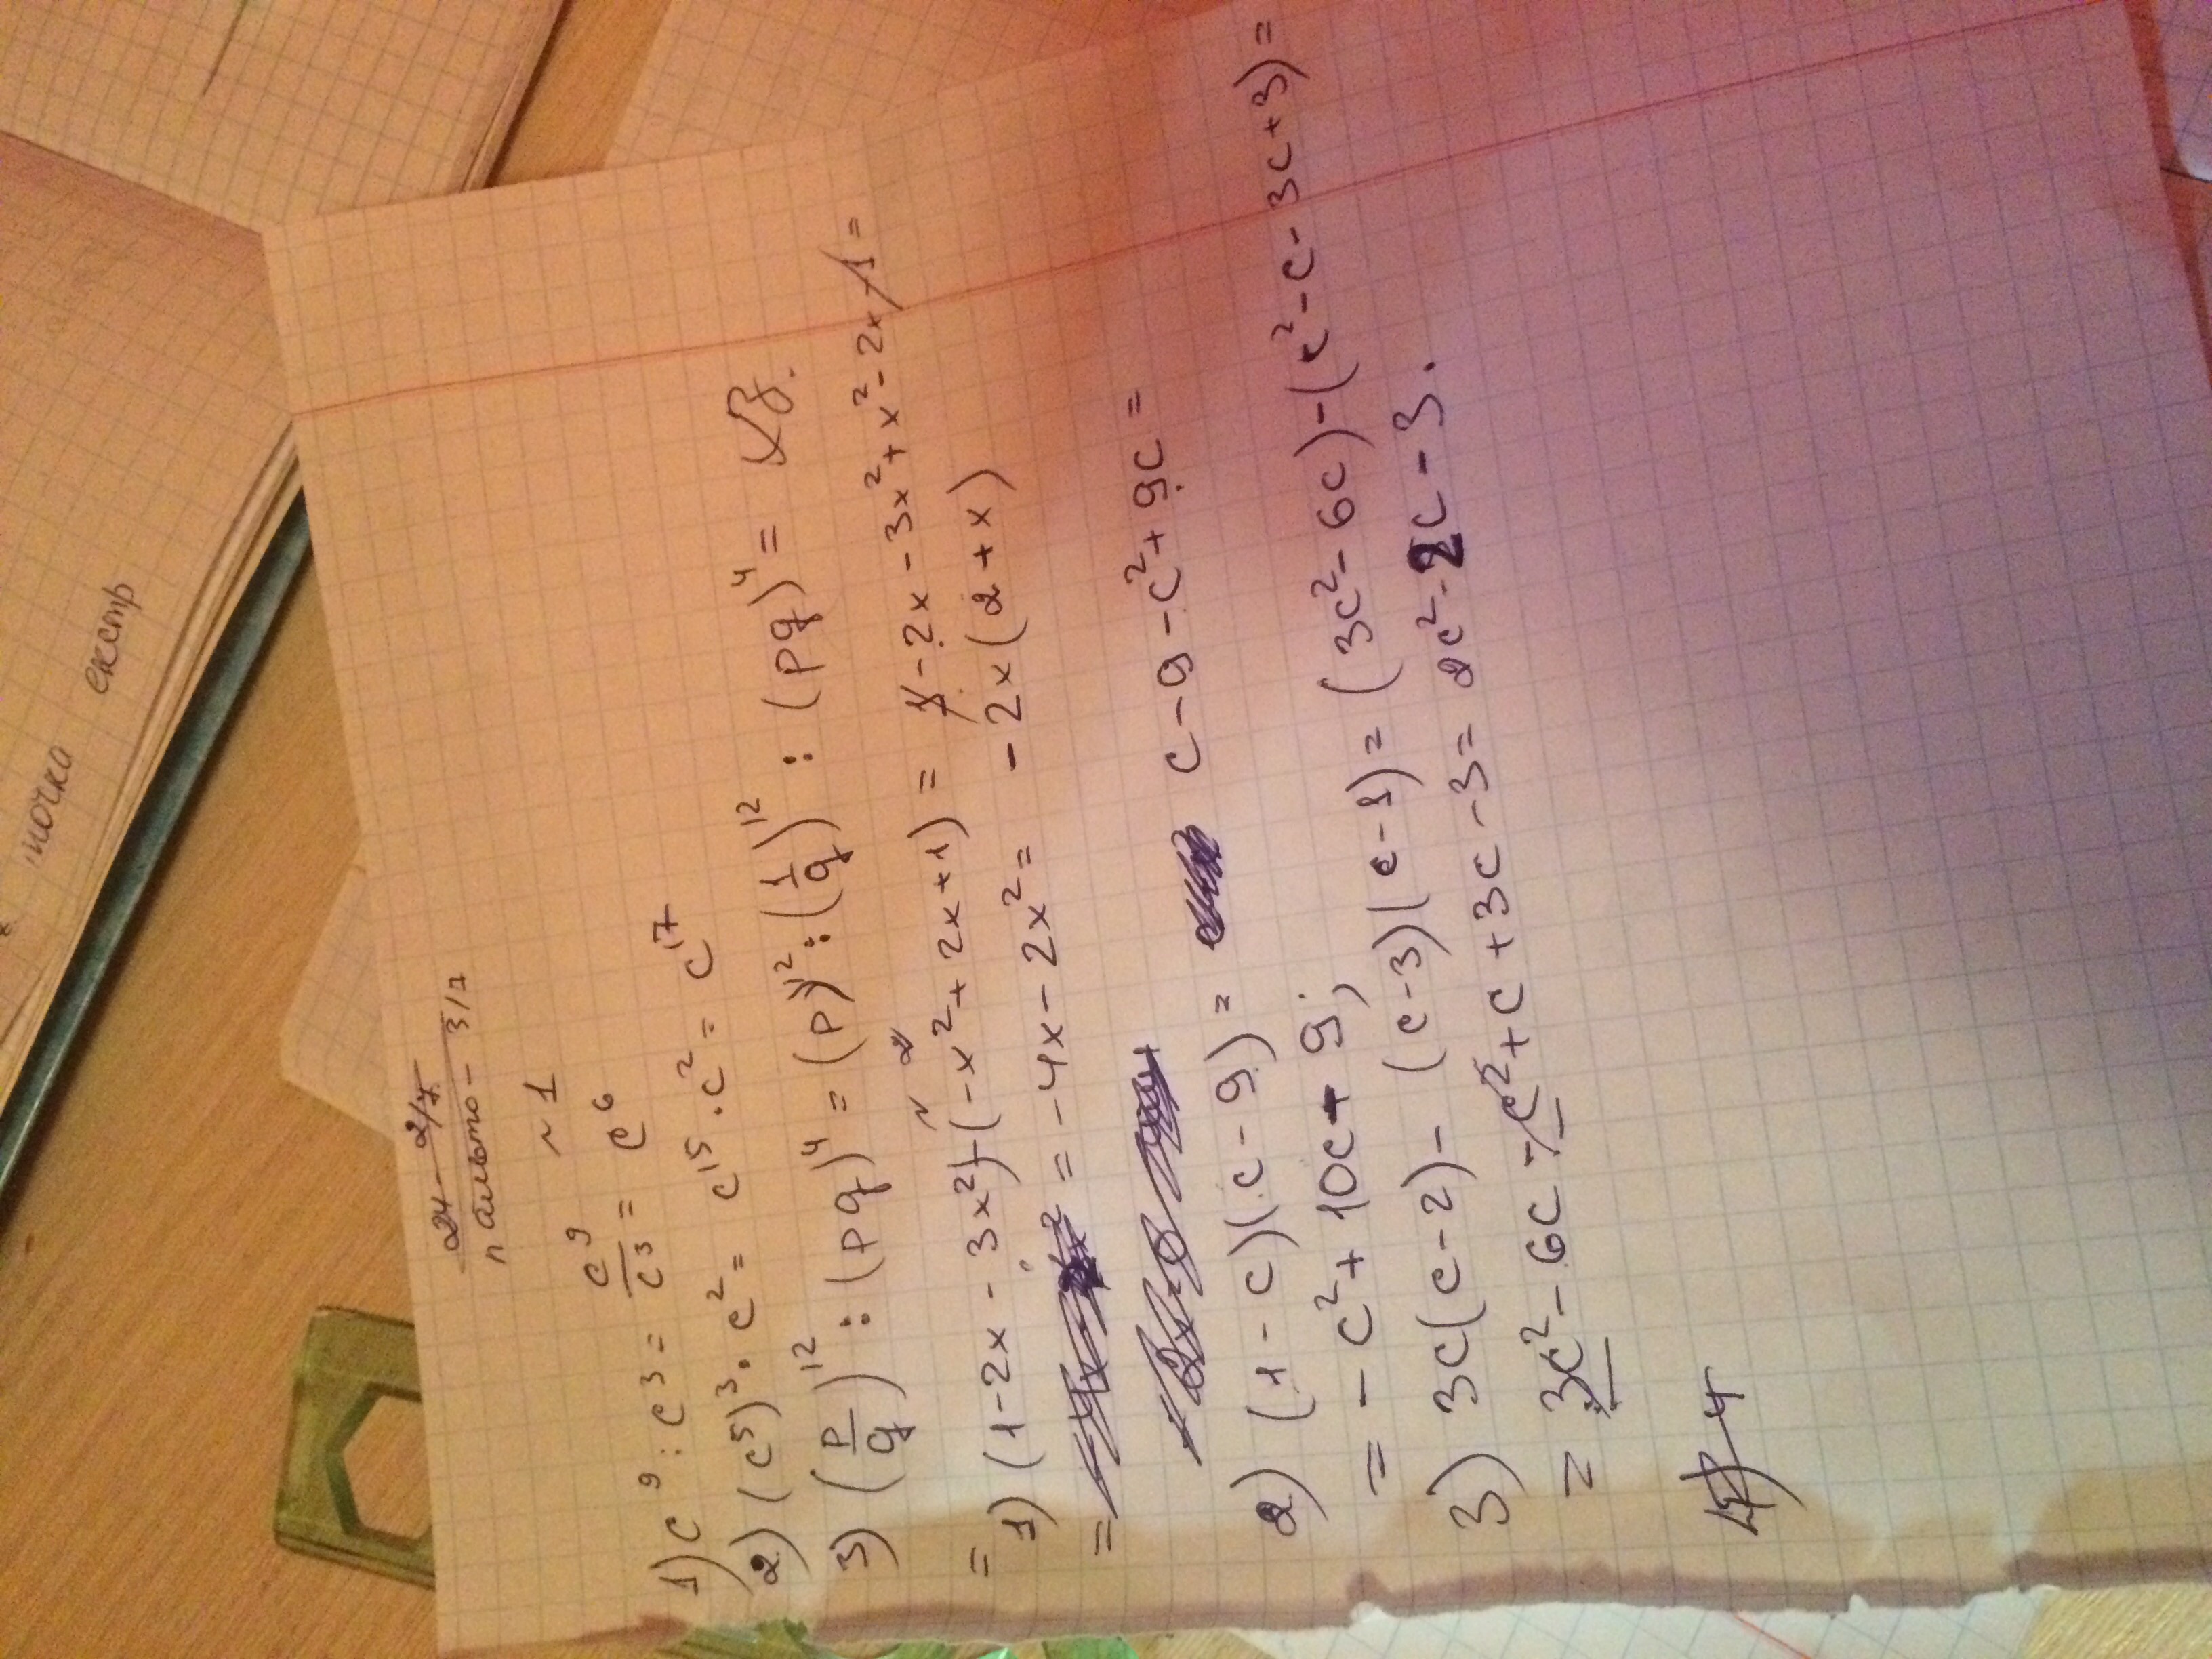 точка екстр
24 - 2/7
пальто - 3/7
~ 1
1) c⁹ : c³ = c⁹/c³ = c⁶
2) (c⁵)³ · c² = c¹⁵ · c² = c¹⁷
3) (p/q)¹² : (pq)⁴ = (p)¹² : (1/q)¹² : (pq)⁴ =
~ 2
= 1) (1 - 2x - 3x²) - (-x² + 2x + 1) = 1 - 2x - 3x² + x² - 2x - 1 =
= = -4x - 2x² = -2x(2 + x)
2) (1 - c)(c - 9) = c - 9 - c² + 9c =
= - c² + 10c - 9;
3) 3c(c - 2) - (c - 3)(c - 1) = (3c² - 6c) - (c² - c - 3c + 3) =
= 3c² - 6c - c² + c + 3c - 3 = 2c² - 2c - 3.